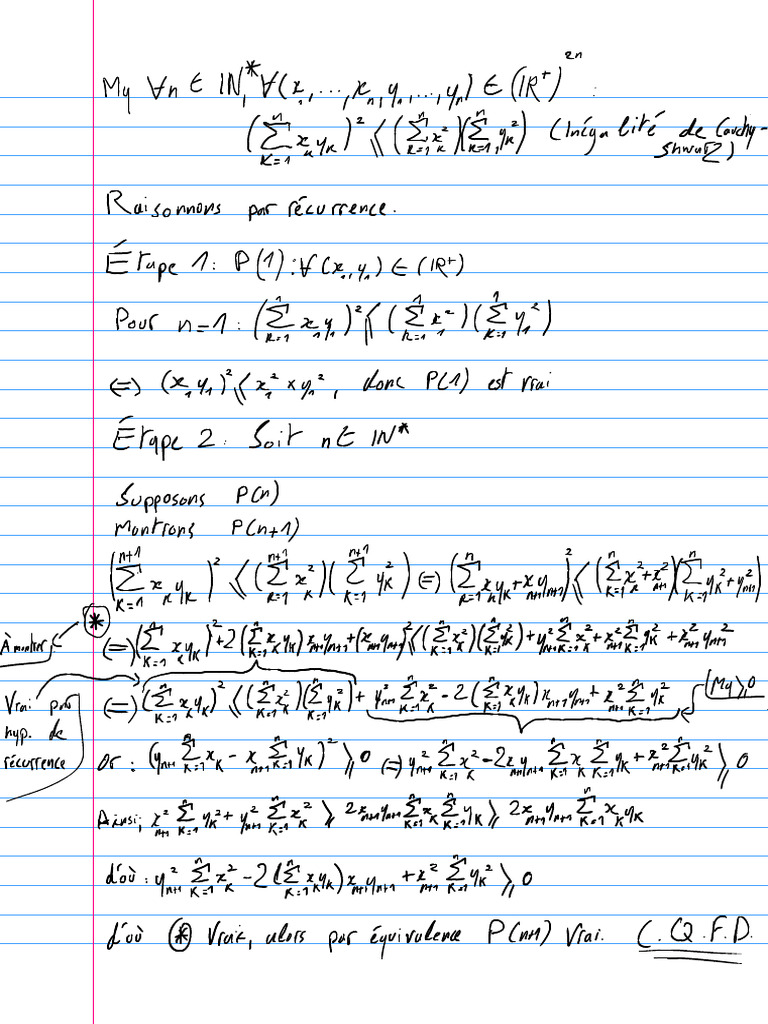 Mq ∀n ∈ IN*, ∀(x₁, ..., xₙ, y₁, ..., yₙ) ∈ (IR⁺)²ⁿ :
(∑ₖ₌₁ⁿ xₖyₖ)² ⩽ (∑ₖ₌₁ⁿ xₖ²)(∑ₖ₌₁ⁿ yₖ²) (Inégalité de Cauchy-
Shwarz)
Raisonnons par récurrence.
Étape 1 : P(1) : ∀(x₁, y₁) ∈ (IR⁺)
Pour n=1 : (∑ₖ₌₁¹ x₁y₁)² ⩽ (∑ₖ₌₁¹ x₁²)(∑ₖ₌₁¹ y₁²)
⟺ (x₁y₁)² ⩽ x₁² × y₁², donc P(1) est vrai
Étape 2 : Soit n ∈ IN*
Supposons P(n)
Montrons P(n+1)
(∑ₖ₌₁ⁿ⁺¹ xₖyₖ)² ⩽ (∑ₖ₌₁ⁿ⁺¹ xₖ²)(∑ₖ₌₁ⁿ⁺¹ yₖ²) ⟺ (∑ₖ₌₁ⁿ xₖyₖ + xₙ₊₁yₙ₊₁)² ⩽ (∑ₖ₌₁ⁿ xₖ² + xₙ₊₁²)(∑ₖ₌₁ⁿ yₖ² + yₙ₊₁²)
À montrer * ⟺ (∑ₖ₌₁ⁿ xₖyₖ)² + 2(∑ₖ₌₁ⁿ xₖyₖ)xₙ₊₁yₙ₊₁ + (xₙ₊₁yₙ₊₁)² ⩽ (∑ₖ₌₁ⁿ xₖ²)(∑ₖ₌₁ⁿ yₖ²) + yₙ₊₁² ∑ₖ₌₁ⁿ xₖ² + xₙ₊₁² ∑ₖ₌₁ⁿ yₖ² + xₙ₊₁² yₙ₊₁²
⟺ (∑ₖ₌₁ⁿ xₖyₖ)² ⩽ (∑ₖ₌₁ⁿ xₖ²)(∑ₖ₌₁ⁿ yₖ²) + yₙ₊₁² ∑ₖ₌₁ⁿ xₖ² - 2(∑ₖ₌₁ⁿ xₖyₖ)xₙ₊₁yₙ₊₁ + xₙ₊₁² ∑ₖ₌₁ⁿ yₖ² (Mq) ⩾ 0
Vrai par
hyp. de
récurrence
Or : (yₙ₊₁ ∑ₖ₌₁ⁿ xₖ - xₙ₊₁ ∑ₖ₌₁ⁿ yₖ)² ⩾ 0 ⟺ yₙ₊₁² ∑ₖ₌₁ⁿ xₖ² - 2xₙ₊₁yₙ₊₁ ∑ₖ₌₁ⁿ xₖ ∑ₖ₌₁ⁿ yₖ + xₙ₊₁² ∑ₖ₌₁ⁿ yₖ² ⩾ 0
Ainsi, xₙ₊₁² ∑ₖ₌₁ⁿ yₖ² + yₙ₊₁² ∑ₖ₌₁ⁿ xₖ² ⩾ 2xₙ₊₁yₙ₊₁ ∑ₖ₌₁ⁿ xₖ ∑ₖ₌₁ⁿ yₖ ⩾ 2xₙ₊₁yₙ₊₁ ∑ₖ₌₁ⁿ xₖyₖ
d'où : yₙ₊₁² ∑ₖ₌₁ⁿ xₖ² - 2(∑ₖ₌₁ⁿ xₖyₖ)xₙ₊₁yₙ₊₁ + xₙ₊₁² ∑ₖ₌₁ⁿ yₖ² ⩾ 0
d'où * Vraie, alors par équivalence P(n+1) vrai. C.Q.F.D.